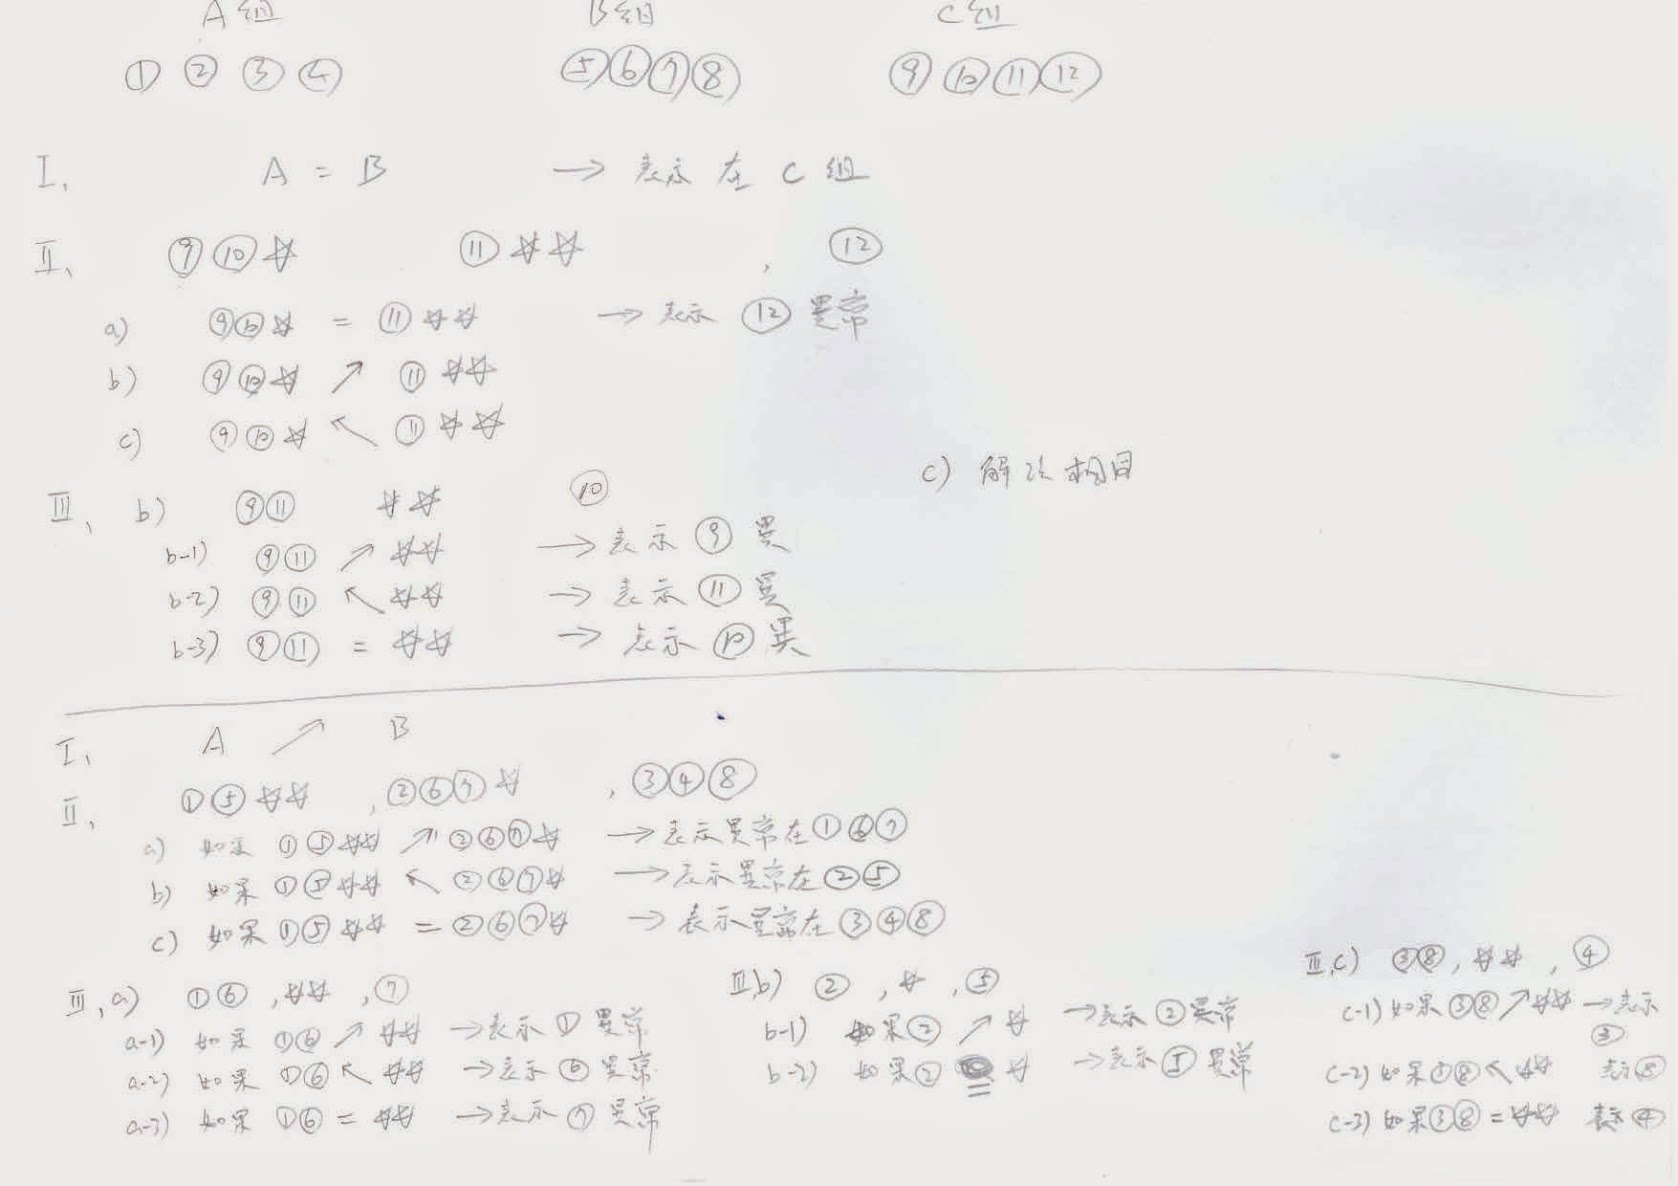 A組 B組 C組
① ② ③ ④ ⑤ ⑥ ⑦ ⑧ ⑨ ⑩ ⑪ ⑫
I、 A = B → 表示 在 C 組
II、 ⑨ ⑩ ☆ ⑪ ☆ ☆ , ⑫
a) ⑨ ⑩ ☆ = ⑪ ☆ ☆ → 表示 ⑫ 異常
b) ⑨ ⑩ ☆ ↗ ⑪ ☆ ☆
c) ⑨ ⑩ ☆ ↖ ⑪ ☆ ☆
c) 解法相同
III、 b) ⑨ ⑪ ☆ ☆ ⑩
b-1) ⑨ ⑪ ↗ ☆ ☆ → 表示 ⑨ 異
b-2) ⑨ ⑪ ↖ ☆ ☆ → 表示 ⑪ 異
b-3) ⑨ ⑪ = ☆ ☆ → 表示 ⑩ 異
I、 A ↗ B
II、 ① ⑤ ☆ ☆ , ② ⑥ ⑦ ☆ , ③ ④ ⑧
a) 如果 ① ⑤ ☆ ☆ ↗ ② ⑥ ⑦ ☆ → 表示異常在 ① ⑥ ⑦
b) 如果 ① ⑤ ☆ ☆ ↖ ② ⑥ ⑦ ☆ → 表示異常在 ② ⑤
c) 如果 ① ⑤ ☆ ☆ = ② ⑥ ⑦ ☆ → 表示異常在 ③ ④ ⑧
III, a) ① ⑥ , ☆ ☆ , ⑦
a-1) 如果 ① ⑥ ↗ ☆ ☆ → 表示 ① 異常
a-2) 如果 ① ⑥ ↖ ☆ ☆ → 表示 ⑥ 異常
a-3) 如果 ① ⑥ = ☆ ☆ → 表示 ⑦ 異常
III, b) ② , ☆ , ⑤
b-1) 如果 ② ↗ ☆ → 表示 ② 異常
b-2) 如果 ② = ☆ → 表示 ⑤ 異常
III, c) ③ ⑧ , ☆ ☆ , ④
c-1) 如果 ③ ⑧ ↗ ☆ ☆ → 表示
③
c-2) 如果 ① ⑧ ↖ ☆ ☆ 表示 ⑧
c-3) 如果 ③ ⑧ = ☆ ☆ 表示 ④